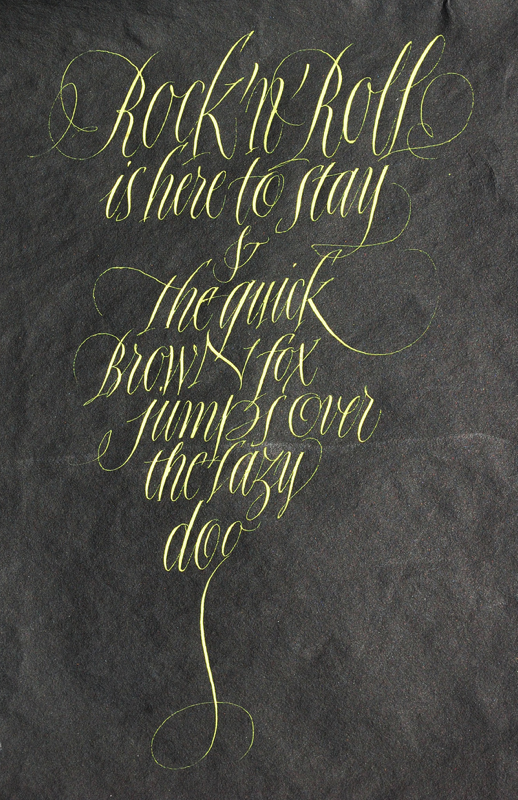 Rock'n'Roll
is here to stay
&
the quick
BrowN fox
jumps over
the lazy
dog